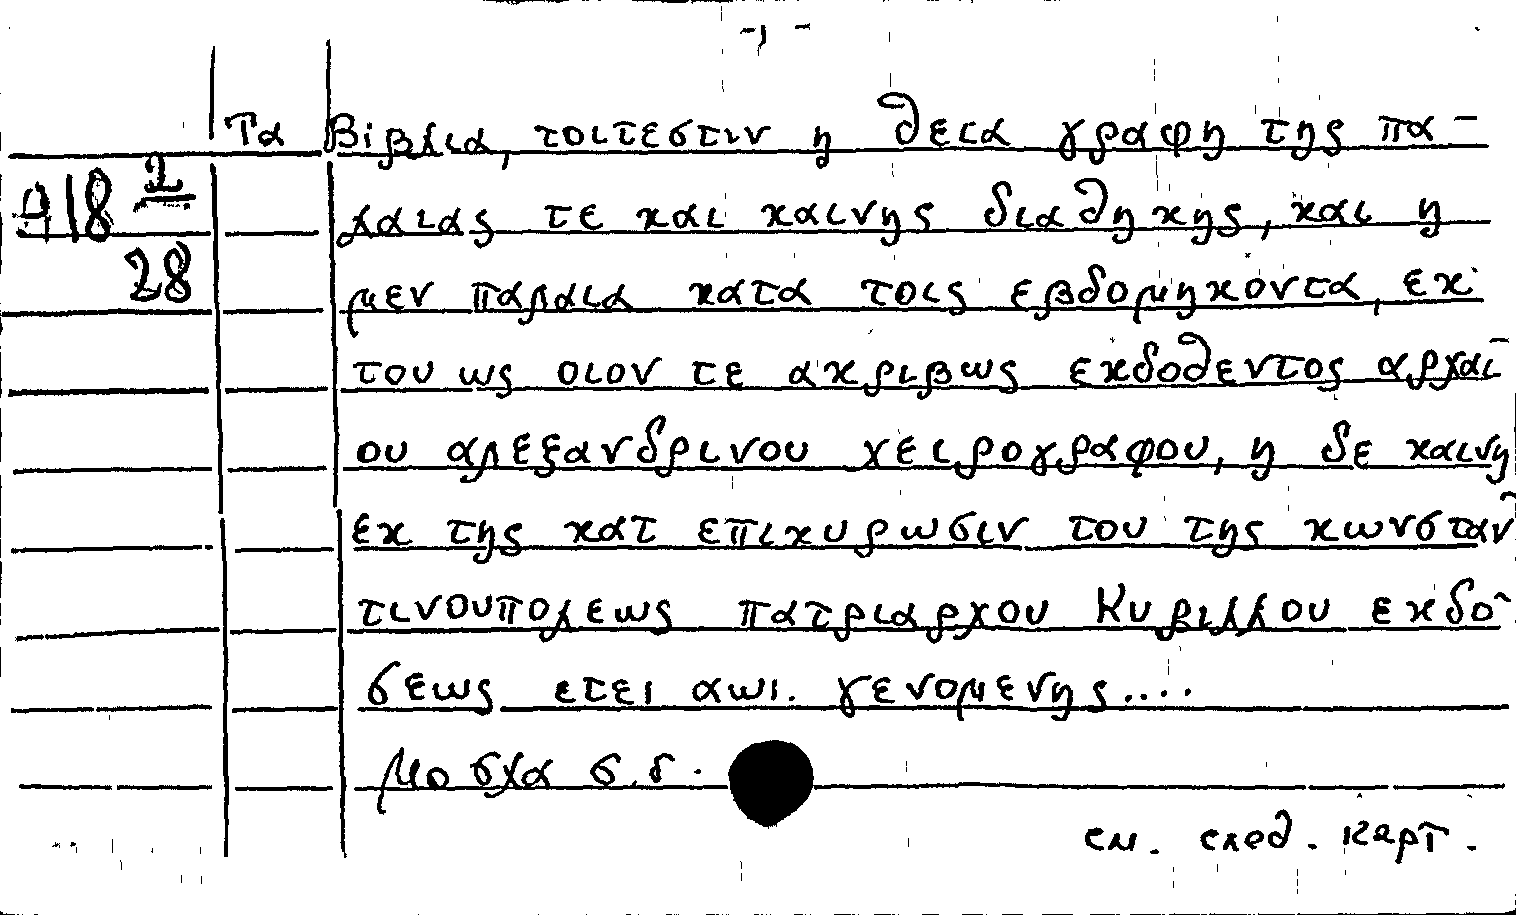 -1-
Τα Βιβλια, τοιτεστιν η θεια γραφη της πα-
λαιας τε και καινης διαθηκης, και η
μεν παλαια κατα τοις εβδομηκοντα, εκ
του ως οιον τε ακριβως εκδοθεντος αρχαι-
ου αλεξανδρινου χειρογραφου, η δε καινη
εκ της κατ επικυρωσιν του της κωνσταν-
τινουπολεως πατριαρχου Κυριλλου εκδο-
σεως ετει αωι. γενομενης....
Μοσχα σ.δ.
см. след. карт.
418 2
28